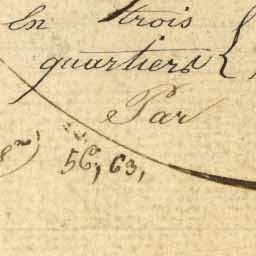 En trois
quartiers {
Par
56, 63,